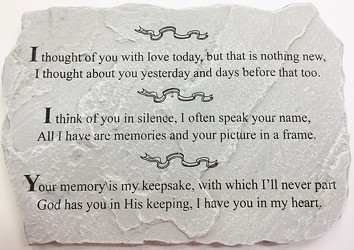 I thought of you with love today, but that is nothing new,
I thought about you yesterday and days before that too.
I think of you in silence, I often speak your name,
All I have are memories and your picture in a frame.
Your memory is my keepsake, with which I'll never part
God has you in His keeping, I have you in my heart.